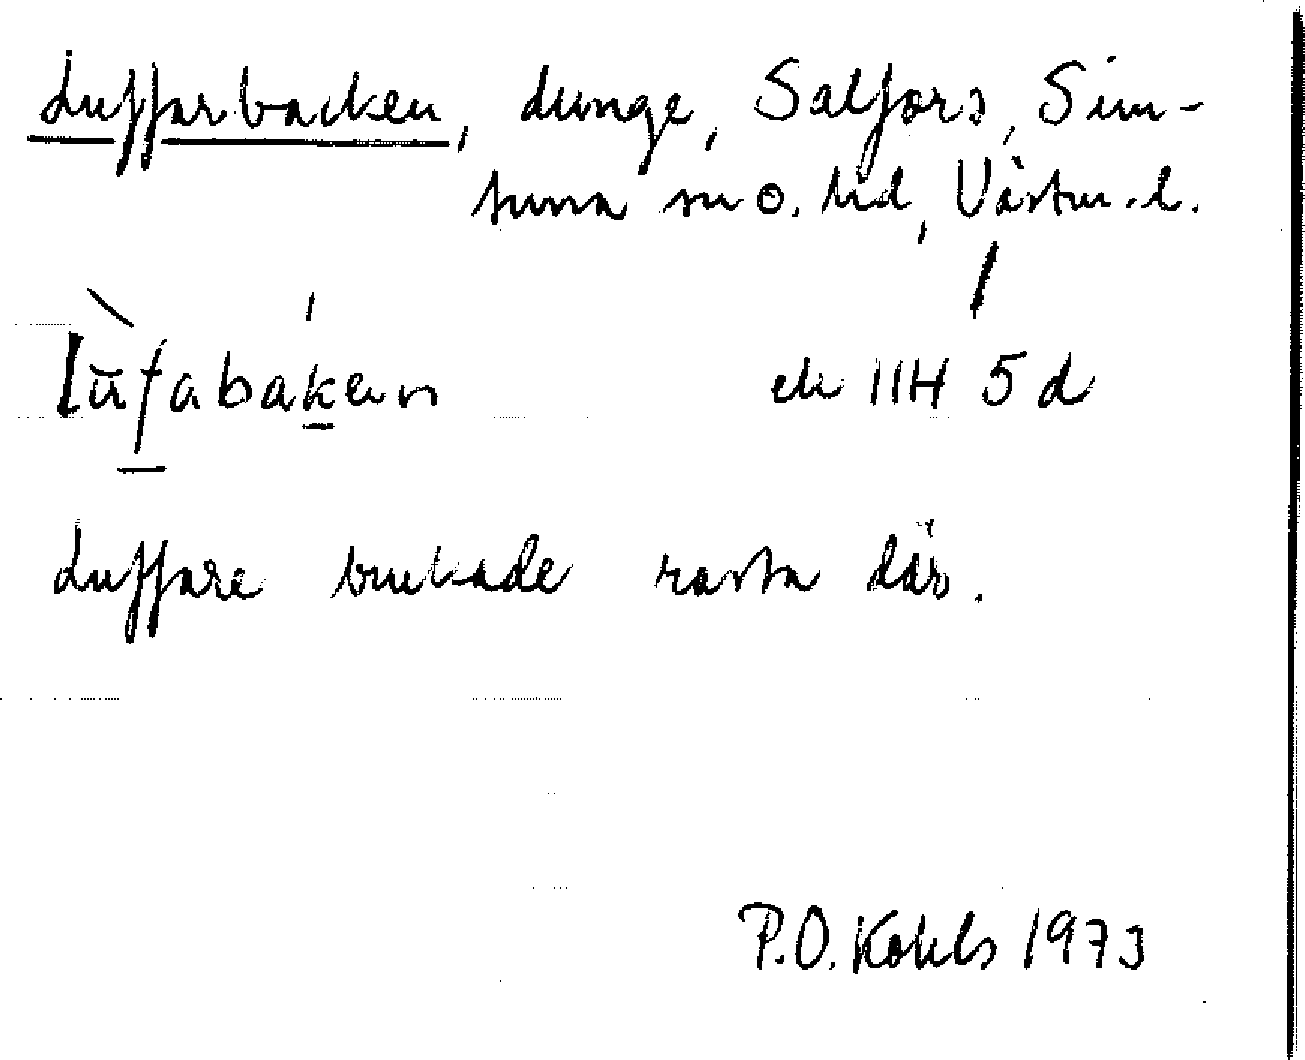 Luffarbacken, dunge, Salfors, Sim-
tuna sn o. hd, Västm. l.
lùfabákan
ek 11H 5d
Luffare brukade rasta där.
P.O. Kohls 1973